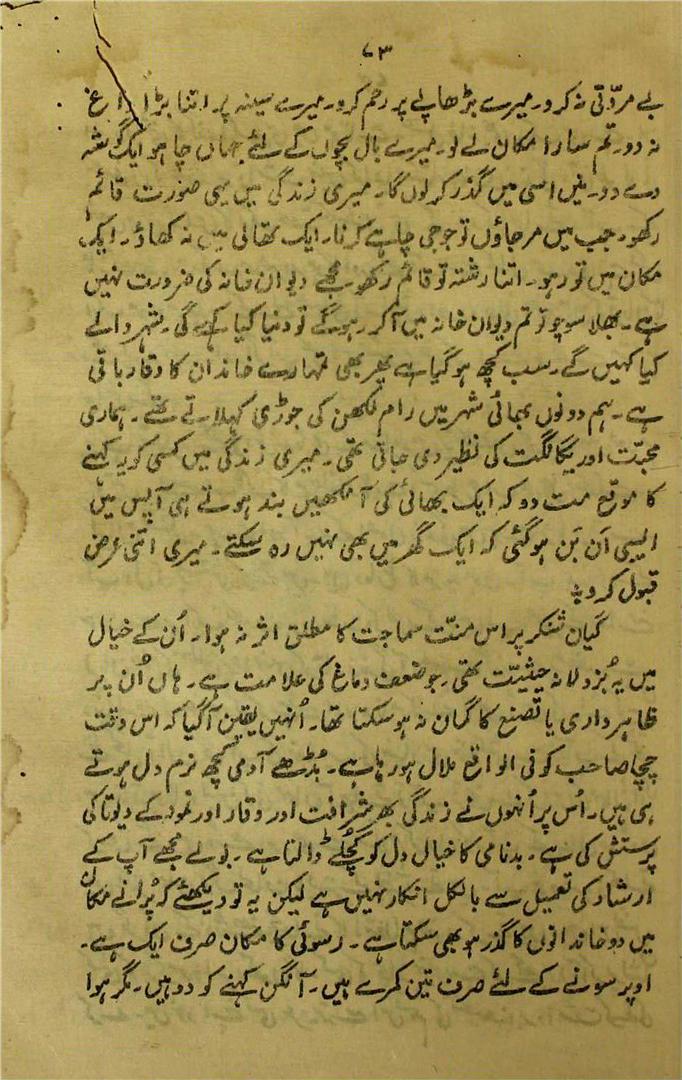 ۷۳
بے مروّتی نہ کرو۔ میرے بڑھاپے پر رحم کرو۔ میرے سینہ پر اتنا بڑا داغ
نہ دو۔ تم سارا مکان لے لو۔ میرے بال بچوں کے لئے جہاں چاہو ایک گوشہ
دے دو۔ میں اسی میں گذر کر لوں گا۔ میری زندگی میں یہی صورت قائم
رکھو۔ جب میں مر جاؤں تو جو جی چاہے کرنا۔ ایک تھالی میں نہ کھاؤ۔ ایک
مکان میں تو رہو۔ اتنا رشتہ تو قائم رکھو۔ مجھے دیوان خانہ کی ضرورت نہیں
ہے۔ بھلا سوچو تو تم دیوان خانہ میں آکر رہو گے تو دنیا کیا کہے گی۔ شہر والے
کیا کہیں گے۔ سب کچھ ہو گیا ہے پھر بھی تمہارے خاندان کا وقار باقی
ہے۔ ہم دونوں بھائی شہر میں رام لکھن کی جوڑی کہلاتے تھے۔ ہماری
محبّت اور یگانگت کی نظیر دی جاتی تھی۔ میری زندگی میں کسی کو یہ کہنے
کا موقع مت دو کہ ایک بھائی کی آنکھیں بند ہوتے ہی آپس میں
ایسی اَن بَن ہو گئی کہ ایک گھر میں بھی نہیں رہ سکتے۔ میری اتنی عرض
قبول کرو۔
گیان شنکر پر اس منّت سماجت کا مطلق اثر نہ ہوا۔ اُن کے خیال
میں یہ بُزدلانہ حیثیت تھی۔ جو ضعف دماغ کی علامت ہے۔ ہاں اُن پر
ظاہر داری یا تصنع کا گمان نہ ہو سکتا تھا۔ اُنہیں یقین آگیا کہ اس وقت
چچا صاحب کو فی الواقع ملال ہو رہا ہے۔ بُڈھے آدمی کچھ نرم دل ہوتے
ہی ہیں۔ اُس پر اُنہوں نے زندگی بھر شرافت اور وقار اور نمود کے دیوتا کی
پرستش کی ہے۔ بدنامی کا خیال دل کو کچلے ڈالتا ہے۔ بولے مجھے آپ کے
ارشاد کی تعمیل سے بالکل انکار نہیں ہے لیکن یہ تو دیکھئے کہ پُرانے مکان
میں دو خاندانوں کا گذر ہو بھی سکتا ہے۔ رسوئی کا مکان صرف ایک ہے۔
اوپر سونے کے لئے صرف تین کمرے ہیں۔ آنگن کہنے کو دو ہیں۔ مگر ہوا